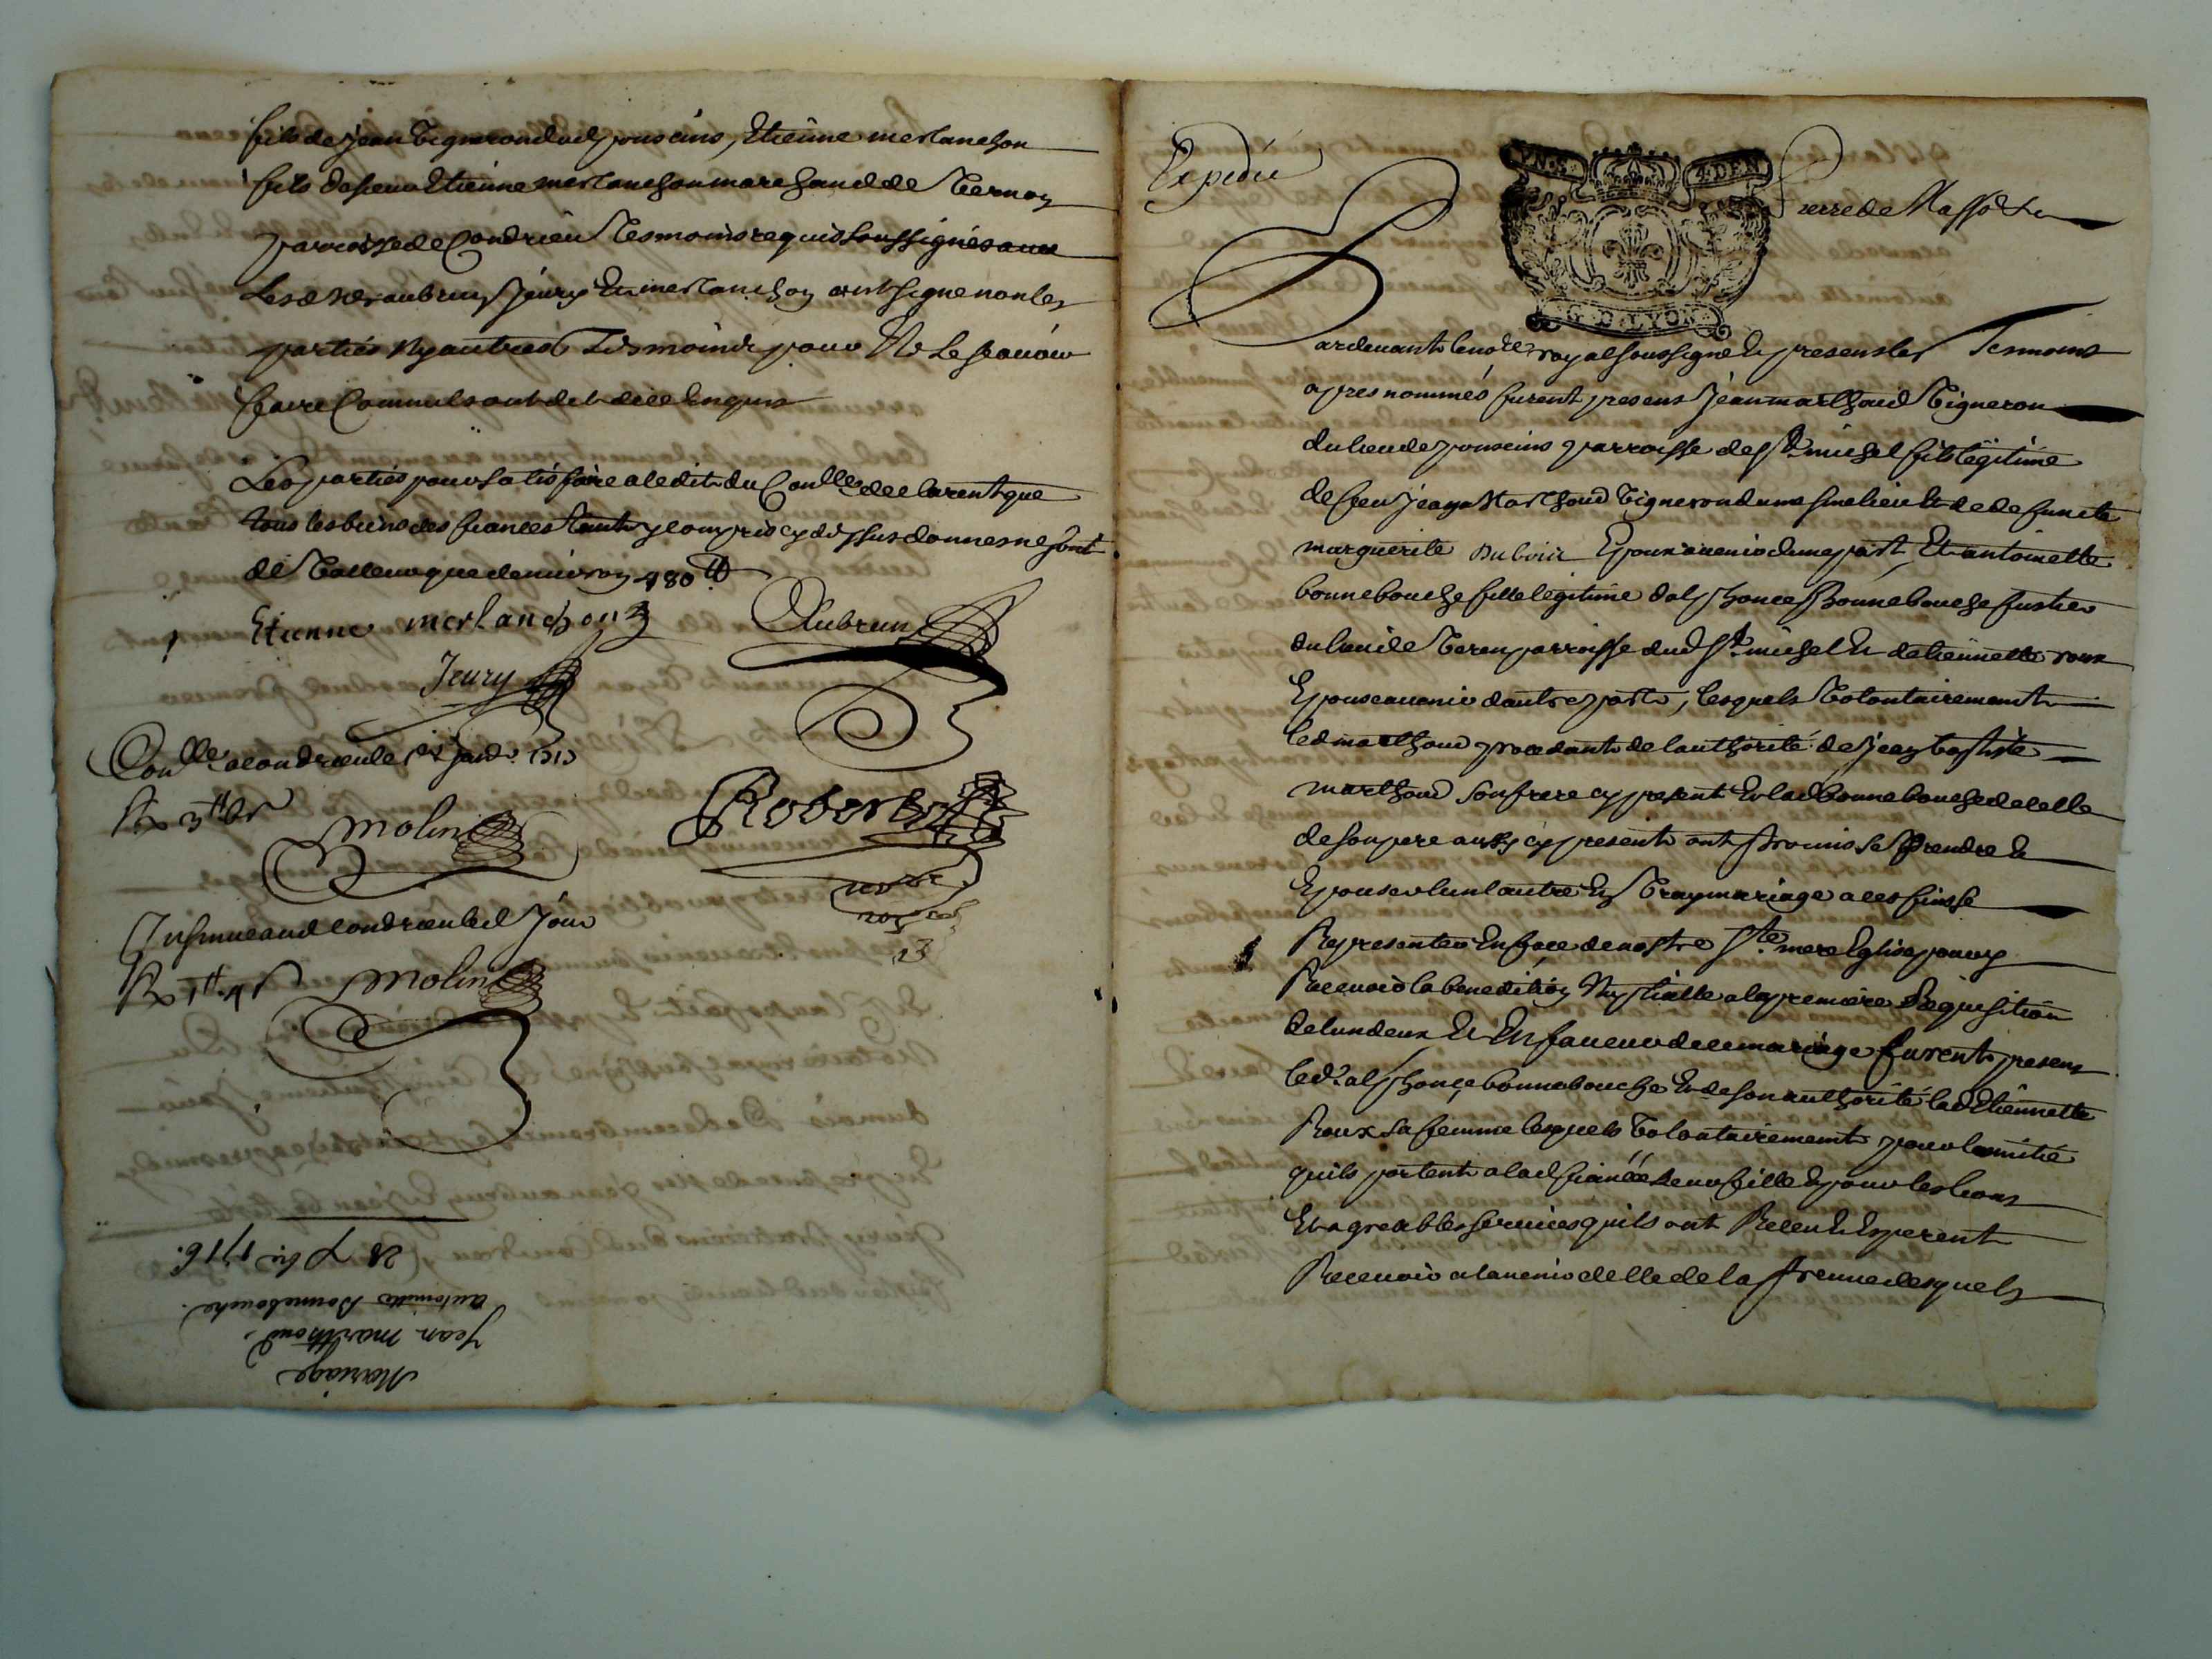 fils de Jean vigneron dud pouscins, Etienne merlanchon
fils de feu Etienne merlanchon marchand de Vernon
parroisse de Condrieu tesmoins requis soussignés avec
Lesd srs aubrun Jeury Et merlanchon ont signé non les
parties Ny autres tesmoins pour Ne le scavoir
faire Comme ils ont dit de ce Enquis
Les parties pour satisfaire a ledit du Conlle declarent que
tous les biens des fiances tant y compris cy dessus donnes ne sont
de Valleur que denviron 480 tt
Etienne merlanchon
Aubrun
Jeury
Conllé a condrieu le
R 3 tt
molin
Robert
nore
roy
Insinué aud condrieu led Jour
R 1 tt 4 s
molin
Mariage
Jean marthoud.
antoinette Bonnebouche.
28 7bre 1716.
Expedié
YN.S. 4.DEN
G. D. LYON
Terre de Mass
Pardevant le nore royal soussigné Et presens les Tesmoins
apres nommés furent presens Jean marthoud Vigneron
du lieu de pouscins parroisse de St michel fils legitime
de feu Jean Marthoud Vigneron du mesme lieu Et de defuncte
marguerite Dubois Epoux avenir dune part, Et antoinette
bonnebouche fille legitime dalphonce Bonnebouche fustier
du lieu de Veren parroisse dud St michel Et detiennette roux
Epouse avenir dautre part, lesquels Volontairement
led marthoud procedant de lauthorité de Jean baptiste
marthoud son frere cy present Et lad bonnebouche de celle
de son pere aussy cy present ont promis se prendre Et
Epouser lun lautre En Vray mariage a ces fins se
Representer En face de nostre Ste mere Eglise pour y
Recevoir la benedition Nuptialle a la premiere Requisition
de lun deux Et En faveur de ce mariage furent presens
led. alphonce bonnebouche Et de son authorité lad Etiennette
Roux sa femme lesquels Volontairement pour lamitié
quils portent a lad fiancée leur fille Et pour les bons
Et agreables services quils ont Receu Et Esperent
Recevoir a lavenir delle de la preuve desquels